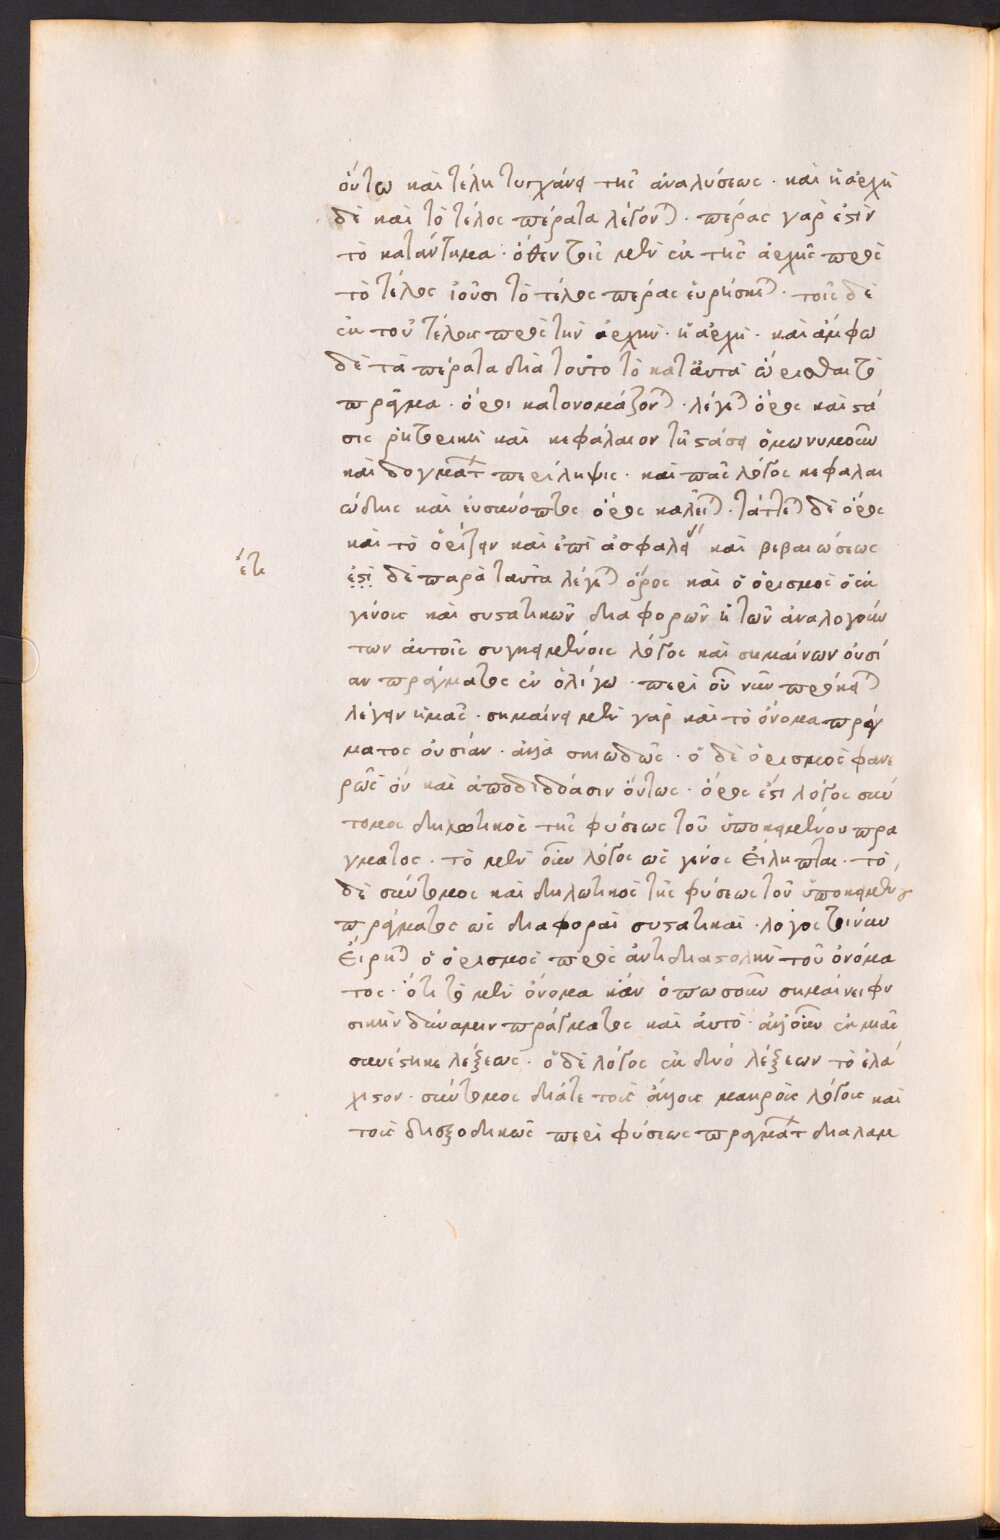 ὄντω καὶ τέλη τυγχάνει τῆς ἀναλύσεως · καὶ ἡ ἀρχὴ
δὲ καὶ τὸ τέλος πέρατα λέγονται · πέρας γάρ ἐστιν
τὸ κατάντημα · ὅθεν τοῖς μὲν ἐκ τῆς ἀρχῆς πρὸς
τὸ τέλος ἰοῦσι τὸ τέλος πέρας εὑρίσκεται · τοῖς δὲ
ἐκ τοῦ τέλους πρὸς τὴν ἀρχὴν · ἡ ἀρχὴ · καὶ ἄμφω
δὲ τὰ πέρατα διὰ τοῦτο τὸ κατ' αὐτὰ ὡρίσθαι τὸ
πρᾶγμα · ὅροι κατονομάζονται · λέγεται ὅρος καὶ στά
σις ῥητορικὴ καὶ κεφάλαιον τῇ στάσει ὁμωνυμοῦν
καὶ δογμάτων περίληψις · καὶ πᾶς λόγος κεφαλαι
ώδης καὶ εὐσύνοπτος ὅρος καλεῖται · τάττεται δὲ ὅρος
καὶ τὸ ὁρίζειν καὶ ἐπὶ ἀσφαλείας καὶ βεβαιώσεως
ἔτι
ἐστὶ δὲ παρὰ ταῦτα λέγεται ὅρος καὶ ὁ ὁρισμὸς ὁ ἐκ
γένους καὶ συστατικῶν διαφορῶν ἢ τῶν ἀναλογούν
των αὐτοῖς συγκειμένοις λόγος καὶ σημαίνων οὐσί
αν πράγματος ἐν ὀλίγω · περὶ οὗ νῦν πρόκειται
λέγειν ἡμᾶς · σημαίνει μὲν γὰρ καὶ τὸ ὄνομα πράγ
ματος οὐσίαν · ἀλλὰ σκιωδῶς · ὁ δὲ ὁρισμὸς φανε
ρῶς ὃν καὶ ἀποδιδόασιν οὕτως · ὅρος ἐστὶ λόγος σύν
τομος δηλωτικὸς τῆς φύσεως τοῦ ὑποκειμένου πρά
γματος · τὸ μὲν οὖν λόγος ὡς γένος εἴληπται · τὸ
δὲ σύντομος καὶ δηλωτικὸς τῆς φύσεως τοῦ ὑποκειμένου
πράγματος ὡς διαφοραὶ συστατικαὶ · λόγος τοίνυν
εἴρηται ὁ ὁρισμὸς πρὸς ἀντιδιαστολὴν τοῦ ὀνόμα
τος · ὅτι τὸ μὲν ὄνομα κἂν ὁπωσοῦν σημαίνει φυ
σικὴν δύναμιν πράγματος καὶ αὐτὸ · ἀλλ' οὖν ἐκ μιᾶς
συνέστηκε λέξεως · ὁ δὲ λόγος ἐκ δυὸ λέξεων τὸ ἐλά
χιστον · σύντομος διά τε τοὺς ἄλλους μακροὺς λόγους καὶ
τοὺς διεξοδικῶς περὶ φύσεως πραγμάτων διαλαμ